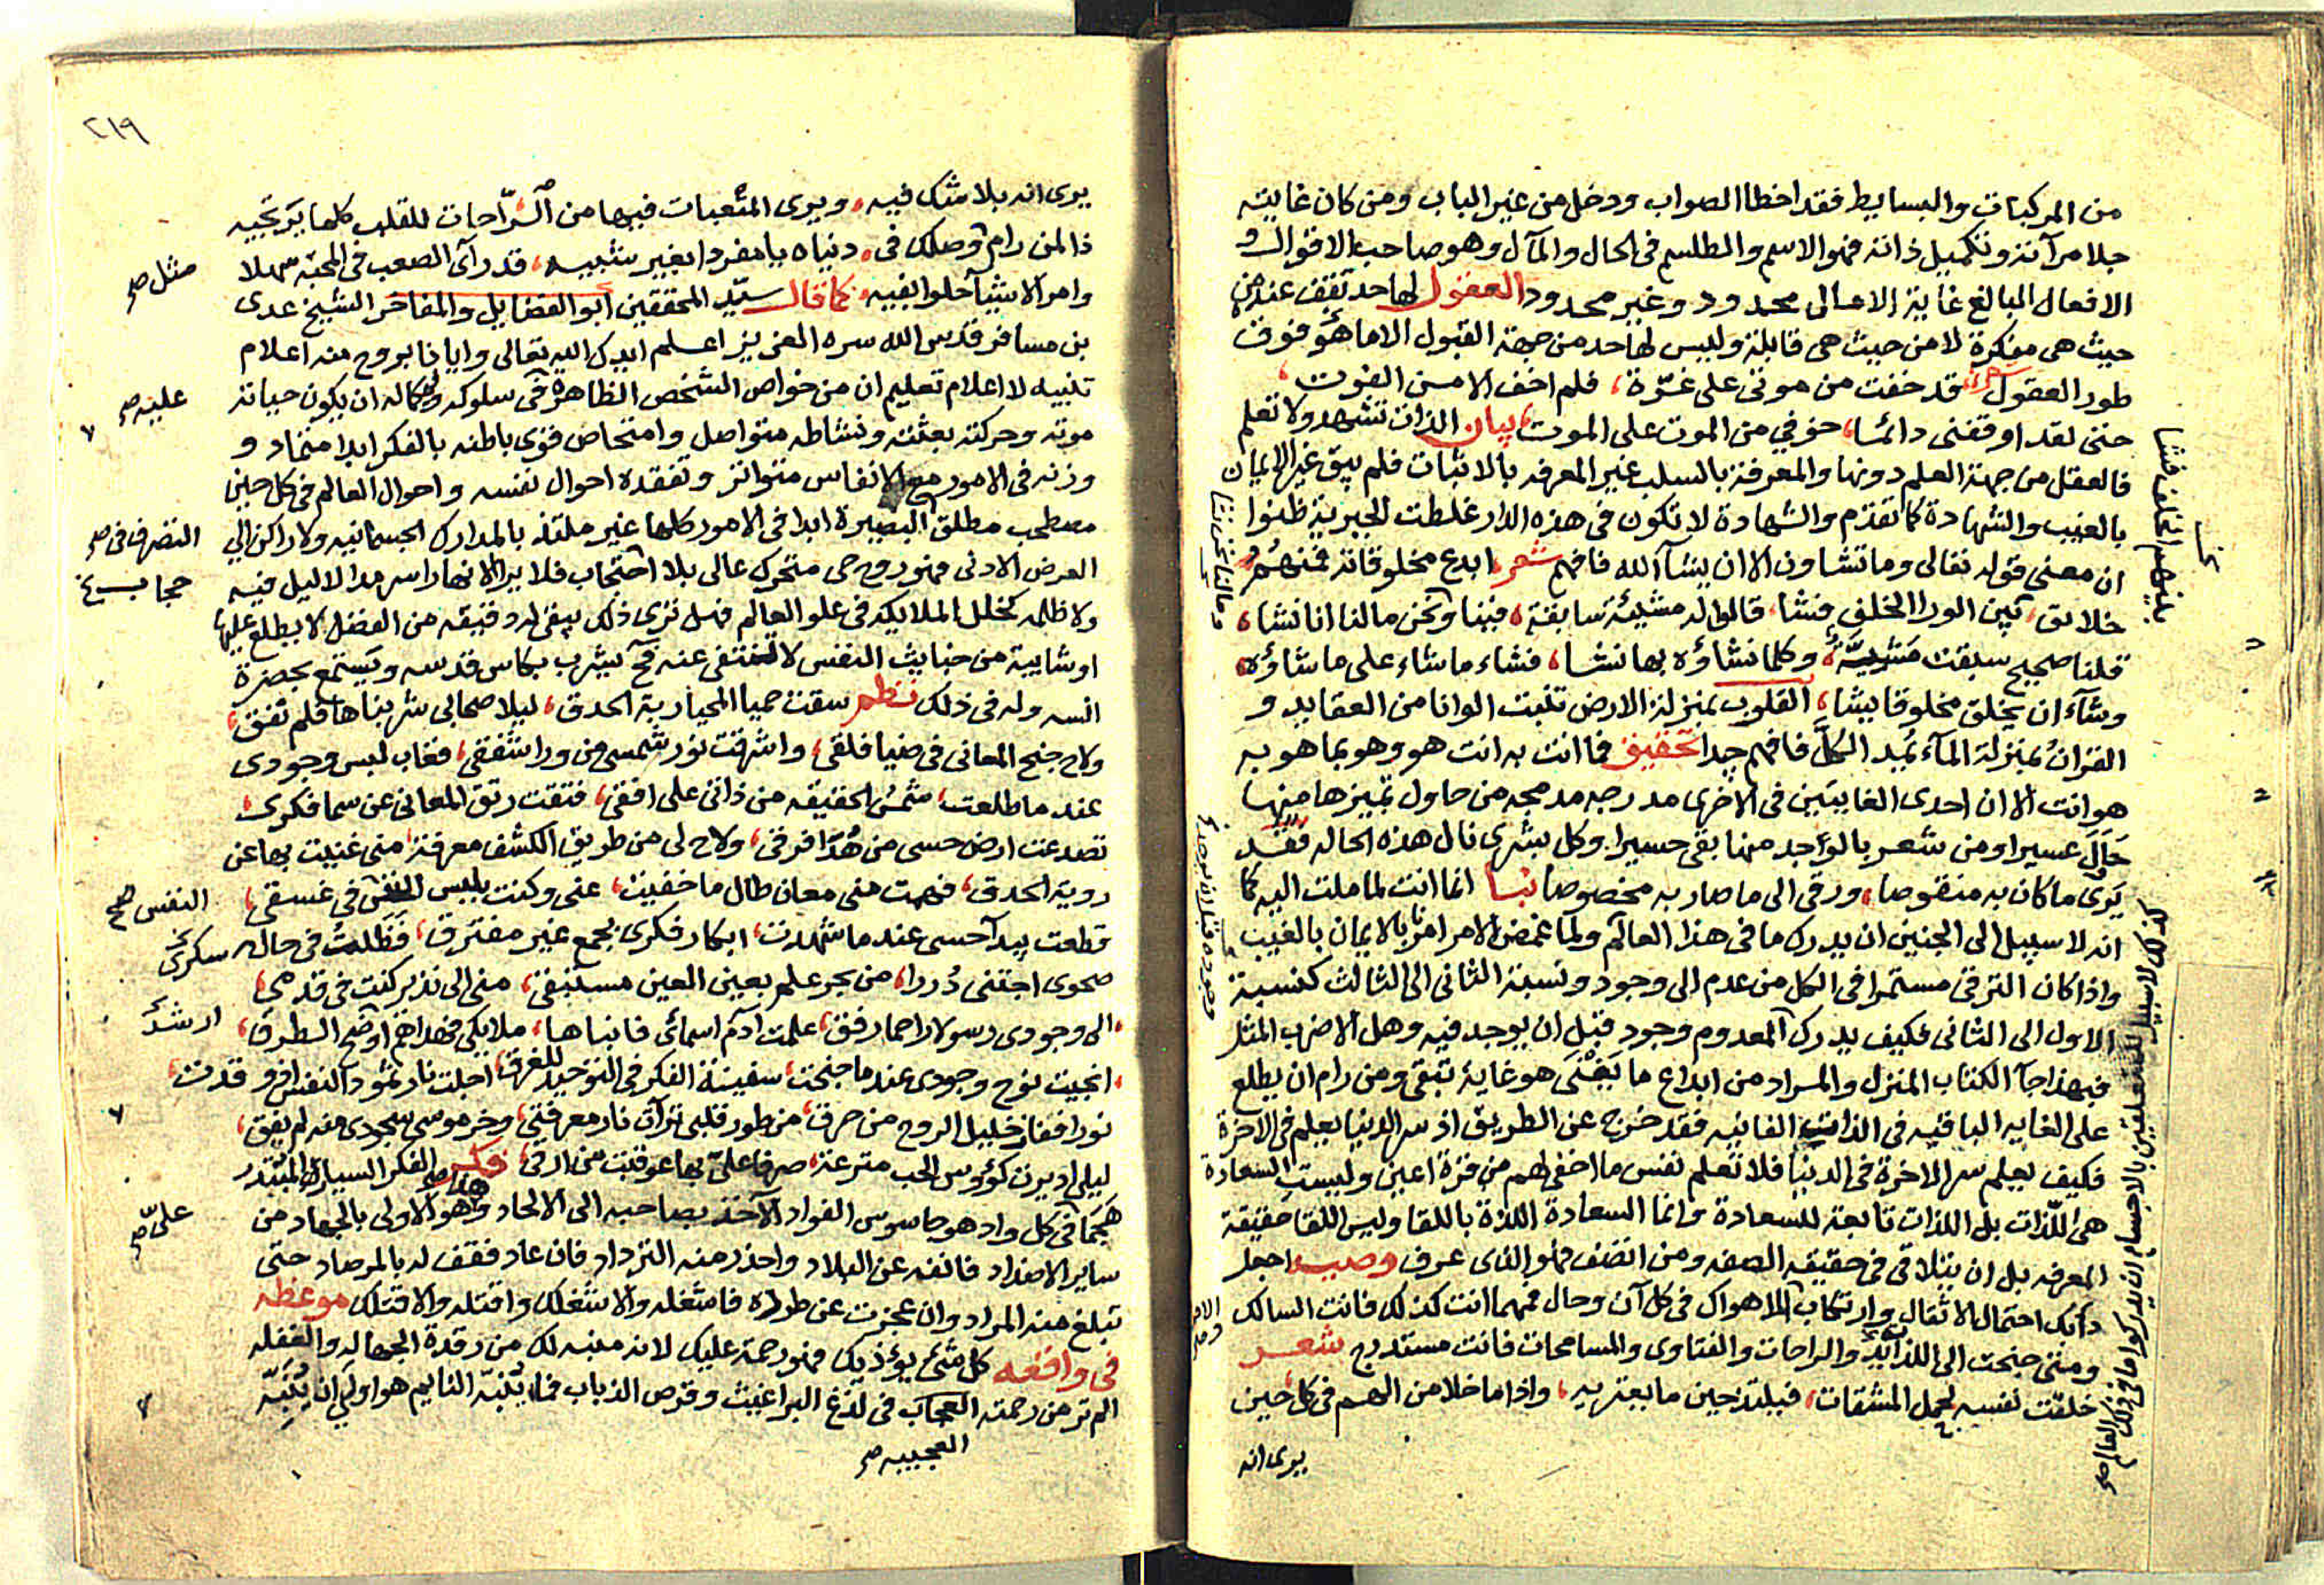 من المركبات والبسايط فقد اخطا الصواب ودخل من غير الباب ومن كان غايته
جلا مرآته وتكميل ذاته فهو الاسم والطلسم في الحال والمآل وهو صاحب الاقوال و
الافعال المبالغ غاية الامالى محدود وغير محدود العقول لها حد تقف عنده من
حيث هي مفكرة لا من حيث هي قابلة وليس لها حد من جهة القبول الا ما هو فوق
طور العقول شعر قد خفت من موتى على غرة، فلم اخف الا من الفوت،
حتى لقد اوقفنى دائما، خوفي من الموت على الموت، بيان الذات تشهد ولا تعلم
فالعقل من جهة العلم دونها والمعرفة بالسلب غير المعرفه بالاثبات فلم يبق غير الايمان
بالغيب والشهادة كما تقدم والشهادة لا تكون في هذه الدار غلطت الجبرية ظنوا
ان معنى قوله تعالى وما تشاون الا ان يشآ الله فافهم شعر ابدع مخلوقاته فمنهم
خلايق، بين الورا الخلف فشا، قالوا له مشيئة سابقة، فينا ونحن مالنا انا نشا،
قلنا صحيح سبقت مشيّة، وكلما نشاؤه بها نشا، فشاء ما شاء على ما شاؤه،
وشآء ان يخلق مخلوقا يشا، القلوب بمنزلة الارض تنبت الوانا من العقايد و
القران بمنزلة المآء يمد الكل فافهم جدا تحقيق فما انت به انت هو وهو بما هو به
هو انت الا ان احدى الغايتين في الاخرى مدرجه مدمجه من حاول تميزها منها
حاول عسيرا ومن شعر بالواحد منها بقى حسيرا، وكل بشرى نال هذه الحاله فقد
يرى ما كان به منقوصا، ورقى الى ما صار به مخصوصا نبا انما انت لما ملت اليه كما
انه لا سبيل الى الجنين ان يدرك ما في هذا العالم ولما غمض الامر امرنا بالايمان بالغيب
واذا كان الترقي مستمرا في الكل من عدم الى وجود ونسبة الثانى الى الثالث كنسبة
الاول الى الثانى فكيف يدرك المعدوم وجود قبل ان يوجد فيه وهل الا ضرب المثل
فبهذا جآ الكتاب المنزل والمراد من ابداع ما يفنى هو غاية تبقى ومن رام ان يطلع
على الغايه الباقيه في الذات الفانيه فقد خرج عن الطريق اذ سر الدنيا يعلم في الاخرة
فكيف يعلم سر الاخرة في الدنيا فلا تعلم نفس ما اخفى لهم من قرة اعين وليست السعادة
هي اللذات بل اللذات تابعة للسعادة وانما السعادة اللذة باللقا وليس اللقا حقيقة
المعرفه بل ان يتلاقى في حقيقه الصفه ومن اتصف فهو الذى عرف وصيه اجعل
دأبك احتمال الاثقال وارتكاب الاهوال في كل آن وحال فمهما انت كذلك فانت السالك
ومتى جنحت الى اللذايذ والراحات والفتاوى والمسامحات فانت مستدرج شعر
خلقت نفسه لحمل المشقات، فيلتذ حين ما يعتريه، واذا ما خلا من الهم في كل حين
يرى انه
بينهم الخلف فشا
ما لنا نحن نشا
كذلك لا سبيل للمتعلقين بالاجسام ان يدركوا ما في ذلك العالم صح
٢١٩
يرى انه بلا شك فيه، ويرى المتعبات فيها من الرّاحات للقلب كلها يرتجيه
ذا لمن رام وصلك في دنياه يا مفردا بغير شبيه، قد رآى الصعب في المحبّه سهلا
وامر الاشيآ حلوا بفيه، كما قال سيّد المحققين ابو الفضايل والمفاخر الشيخ عدى
بن مسافر قدس الله سره العزيز اعلم ايدك الله تعالى وايانا بروح منه اعلام
تنبيه لا اعلام تعليم ان من خواص الشخص الظاهرة في سلوكه وكماله ان يكون حياته
موته وحركته بعثته ونشاطه متواصل وامتحاض قوى باطنه بالفكر ابدا متماد و
وزنه في الامور مع الانفاس متواتر وتفقده احوال نفسه واحوال العالم في كل حين
مصطحب مطلق البصيرة ابدا في الامور كلها غير ملتفذ بالمدارك الجسمانيه ولا راكن الي
العرض الادنى فهو روح حي متحرك عالى بلا احتجاب فلا يرا الا نهارا سرمدا لا ليل فيه
ولا ظلمه كخلل الملايكه في علو العالم فهل ترى ذلك يبقى له دقيقه من الفضل لا يطلع عليها
او شايبة من خبايث النفس لا تنتفى عنه فح يشرب بكاس قدسه ويستمع بحضرة
انسه وله في ذلك نظم سقت حميا المحيا ربة الحدق، ليلا صحابى شربناها فلم نفق،
ولاح جنح المعانى في ضيا فلقى، واشرقت نور شمسى من ورا شفقى، فغاب لبس وجودى
عند ما طلعت، شمس الحقيقه من ذاتى على افقى، فتقت رتق المعانى عن سما فكرى،
تصدعت ارض حسى من هدا فرقى، ولاح لى من طريق الكشف معرفة، منى غنيت بها عن
روية الحدق، فهمت منى معان طال ما خفيت، عنى وكنت بلبس النفس في غسقى،
قطعت بيدآ حسى عند ما شهدت، ابكار فكرى بجمع غير مفترق، فظلت في حال سكرى
صحوى اجتنى دررا، من بحر علم بعين العين مستبقى، منى الى نذير كنت في قدمى،
الى وجودى رسولا راحما رفق، علمت ادم اسمائى فانباها، ملايكى فهداهم اوضح الطرق،
انجيت نوح وجودى عند ما جنحت، سفينة الفكر في التوحيد للغرق، اجلت نار نمرود النفس اذ وقدت،
نورا ففاز خليل الروح من حرق، من طور قلبى ترآت نار معرفتى، وخر موسى سجودى منه لم يفق،
ليلى اديرت كؤوس الحب مترعة، صرفا على بها عوقبت من ارقى، فكر الفكر السيارة المبتدر
هجما في كل واد هو جاسوس الفواد الآخذ بصاحبه الى الالحاد وهو الاولى بالجهاد من
ساير الاضداد فانفه عن البلاد واحذر منه الترداد فان عاد فقف له بالمرصاد حتى
تبلغ منه المراد وان عجزت عن طرده فاشغله والا شغلك واقتله والا قتلك موعظه
في واقعه كل شئ يؤذيك فهو رحمة عليك لانه منبه لك من رقدة الجهاله والغفله
الم تر من رحمته العجاب في لذغ البراغيث وقرص الذباب فما يتنبّه النايم هو اولى ان ينبّه
العجيبه صح
مثل صح
عليه صح
التصرف في صح
حجاب خ
النفس صح
سكرى
ارشد
علىّ صح